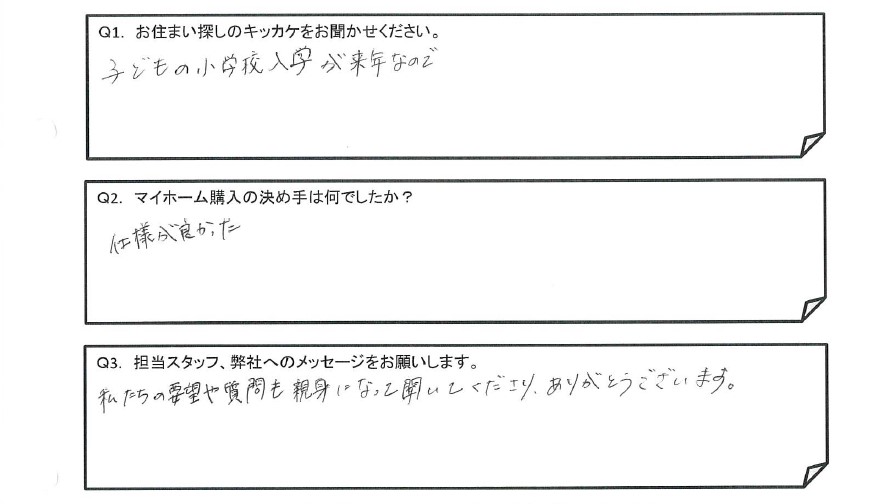 Q1. お住まい探しのキッカケをお聞かせください。
子どもの小学校入学が来年なので
Q2. マイホーム購入の決め手は何でしたか？
仕様が良かった
Q3. 担当スタッフ、弊社へのメッセージをお願いします。
私たちの要望や質問も親身になって聞いてくださり、ありがとうございます。